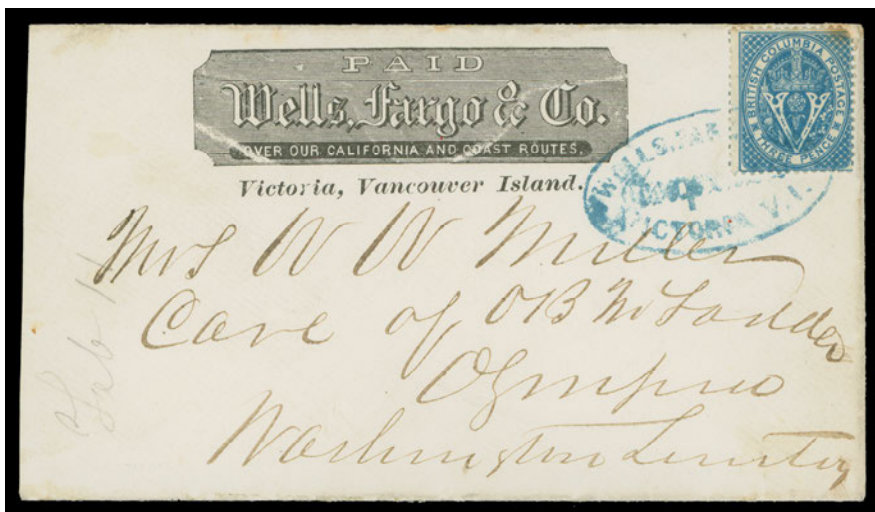 PAID
Wells, Fargo & Co.
OVER OUR CALIFORNIA AND COAST ROUTES.
Victoria, Vancouver Island.
BRITISH COLUMBIA POSTAGE
THREE PENCE
V
WELLS, FAR
VICTORIA V.I.
Mrs W W Miller
Care of OB
Olympia
Washington Territory
Feb